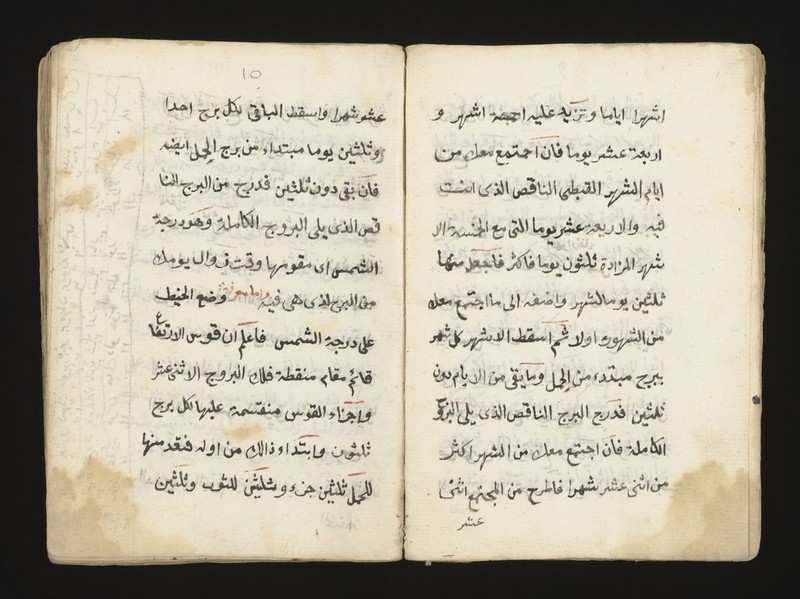 اشهرا اياما وتزيد عليه اجمعة اشهر و
اربعة عشر يوما فان اجتمع معك من
ايام الشهر القبطى الناقص الذى انت
فيه والاربعة عشر يوما التى مع الخمسة الا
شهر المزادة ثلثون يوما فاكثر فاجعل منها
ثلثين يوما لشهر واضفه الى ما اجتمع معك
من الشهور اولا ثم اسقط الاشهر كل شهر
ببرج مبتدء من الحمل وما بقى من الايام دون
ثلثين فدرج البرج الناقص الذى يلى البروج
الكاملة فان اجتمع معك من الشهر اكثر
من اثنى عشر شهرا فاطرح من المجتمع اثنى
عشر
١٥
عشر شهرا واسقط الباقى لكل برج احدا
وثلثين يوما مبتداء من برج الحمل ايضه
فان بقى دون ثلثين فدرج من البرج النا
قص الذى يلى البروج الكاملة وهو درجة
الشمس اى مقومها وقت زوال يومك
من البرج الذى هى فيه واما معرفة وضع الخيط
على درجة الشمس فاعلم ان قوس الارتفاع
قائم مقام منقطة فلك البروج الاثنى عشر
واجزاء القوس منقسمة عليها لكل برج
ثلثون وابتداء ذالك من اوله فتعد منها
للحمل ثلثين جزء وثلثين للثور وثلثين